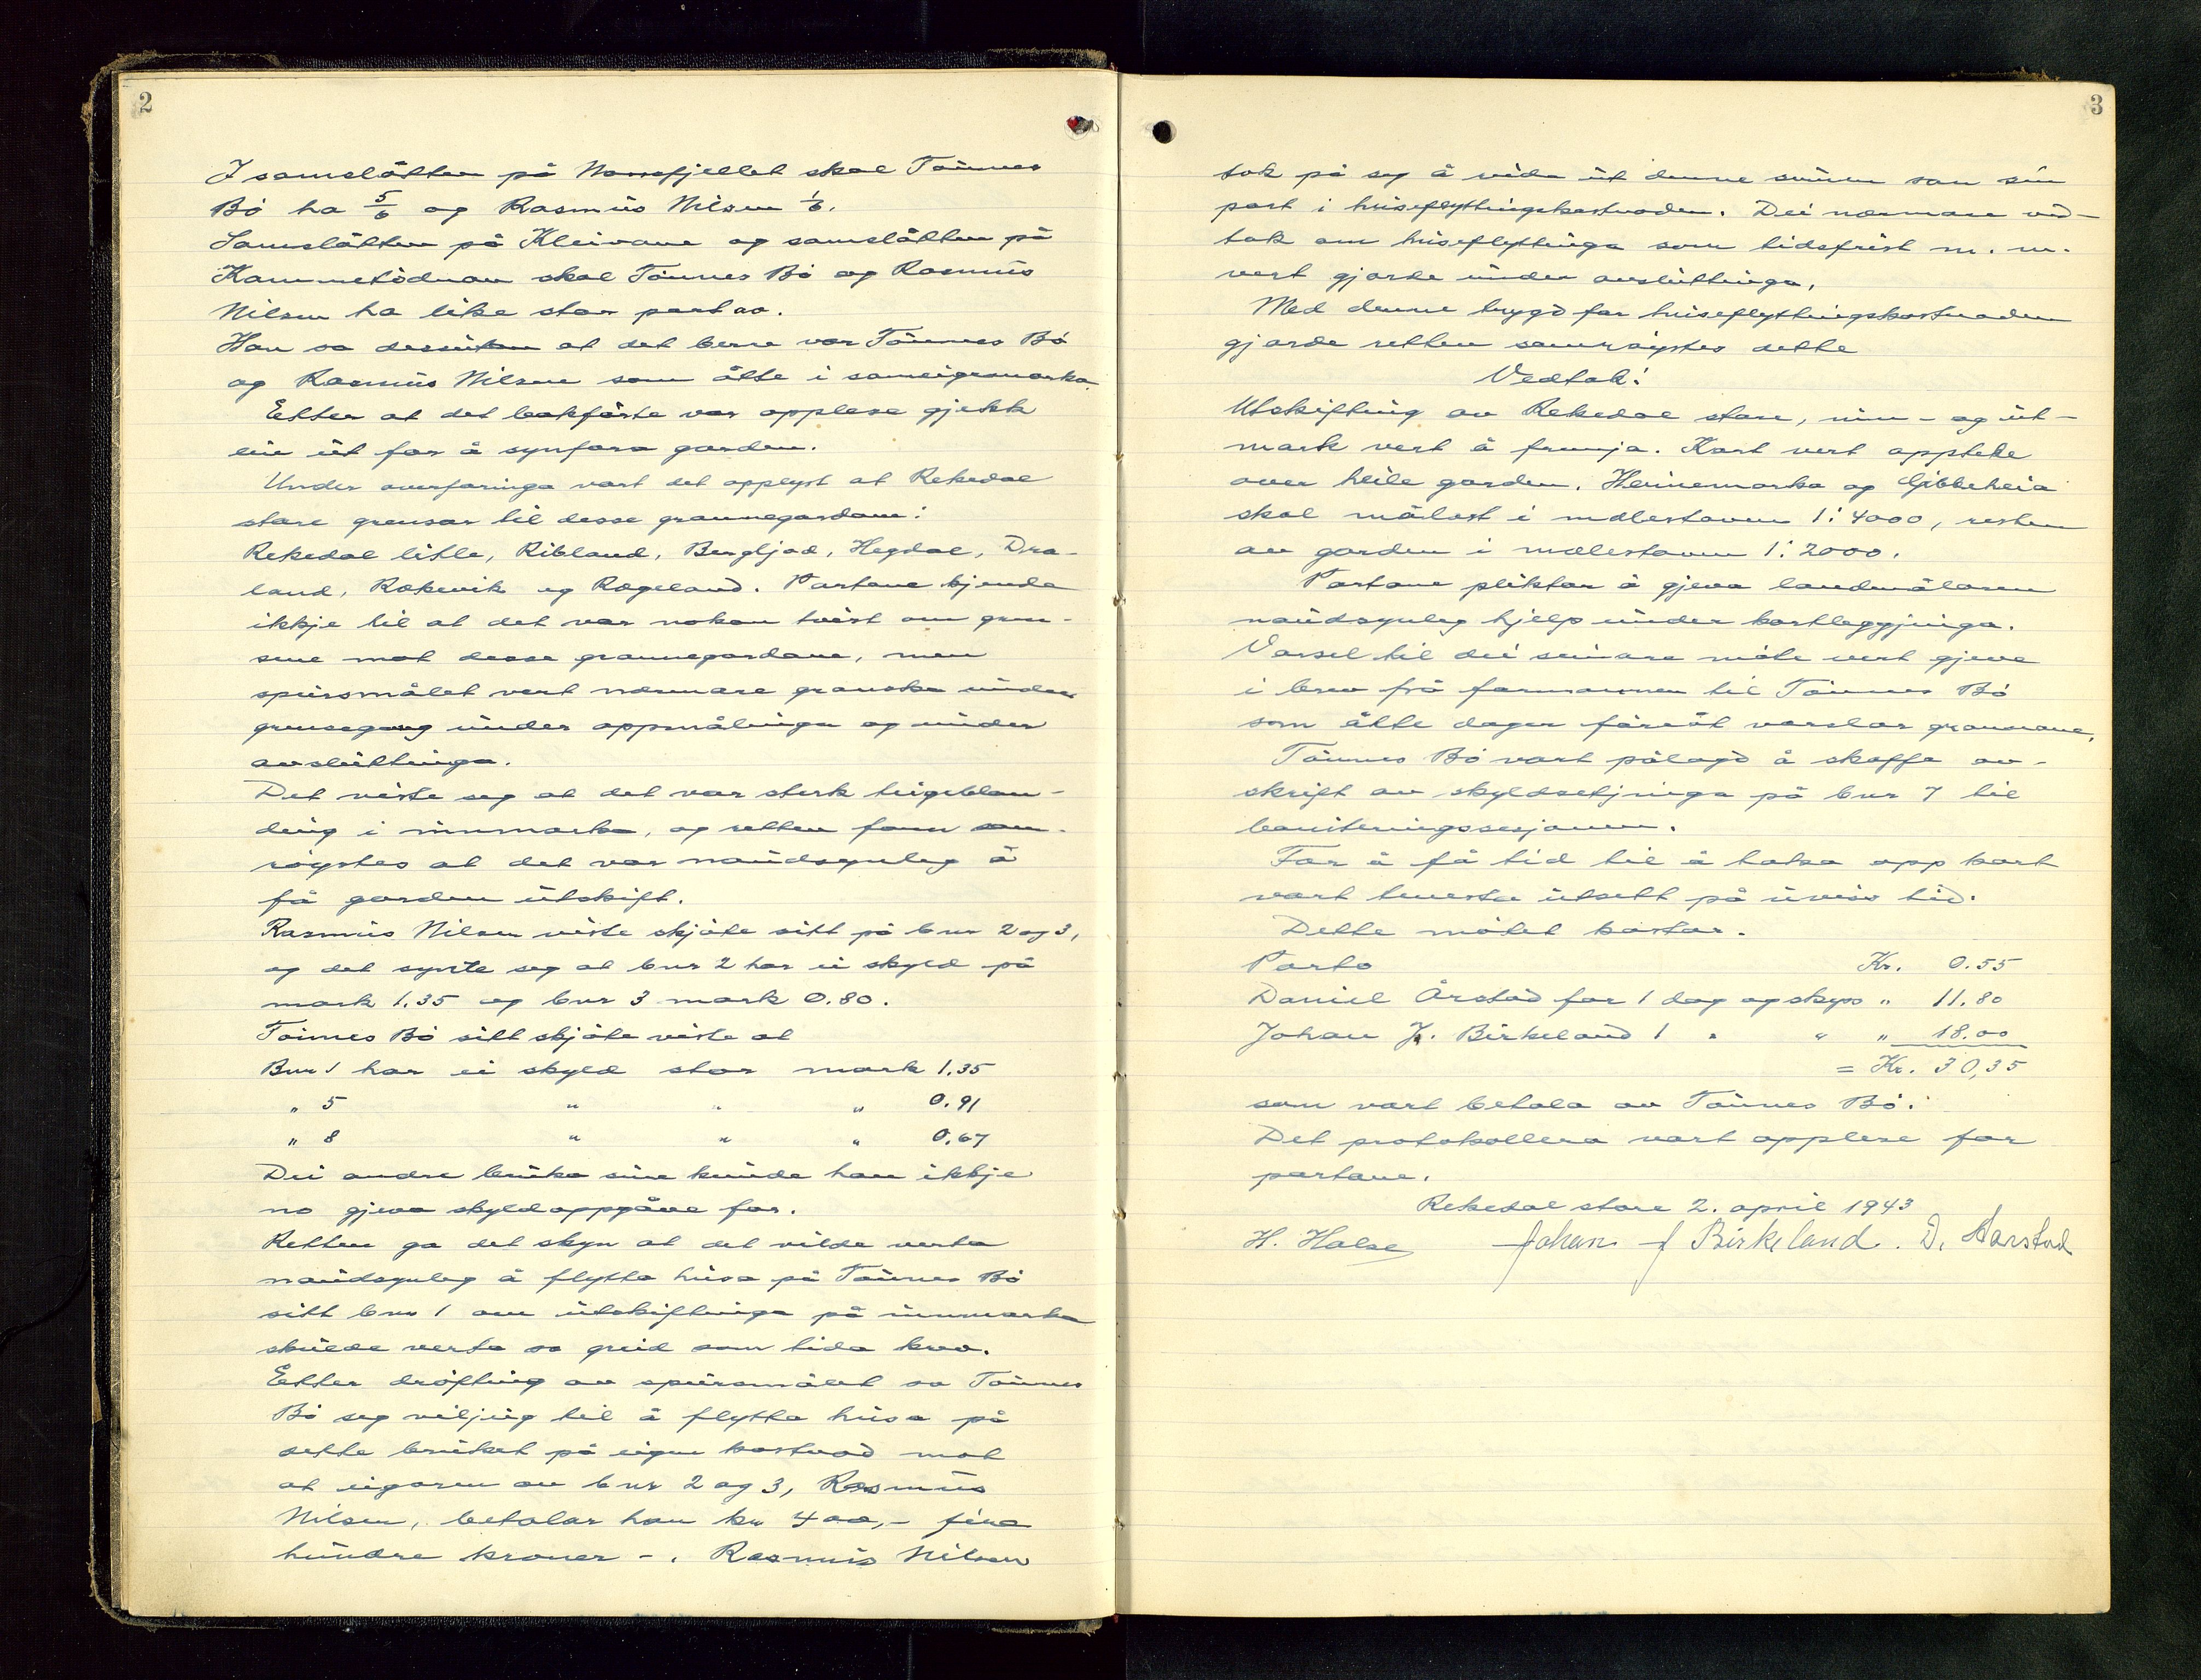 2
I samslåtten på Storefjellet skal Tönnes
Bö ha 5/6 og Rasmus Nilsen 1/6.
Samslåtten på Kleivane og samslåtten på
skal Tönnes Bö og Rasmus
Nilsen ha like stor part av.
Han sa dessutan at det berre var Tönnes Bö
og Rasmus Nilsen som åtte i sameigemarka.
Etter at det bokförte var opplese gjekk
ein ut for å synfara garden.
Under overfaringa vart det opplyst at Rekedal
store grensar til desse grannegardane:
Rekedal litle, Ribland, Bergljad, Hegdal, Dra-
land, Rokevik og Rogeland. Partane kjende
ikkje til at det var nokon tvist om gren-
sene mot desse grannegardane, men
spursmålet vert nærmare granska under
grensegang under oppmålinga og under
avsluttinga.
Det viste seg at det var sterk teigeblan-
ding i innmarka, og retten fann sam-
röystes at det var naudsynleg å
få garden utskift.
Rasmus Nilsen viste skjöte sitt på bnr 2 og 3,
og det synte seg at bnr 2 har ei skyld på
mark 1.35 og bnr 3 mark 0.80.
Tönnes Bö sitt skjöte viste at
Bnr 1 har ei skyld stor mark 1.35
" 5 " " " 0.91
" 8 " " " 0.67
Dei andre bruka sine kunde han ikkje
no gjeva skyldoppgåve for.
Retten ga det skyn at det vilde verta
naudsynleg å flytta husa på Tönnes Bö
sitt bnr 1 om utskiftinga på innmarka
skulde verta so greid som tida krov.
Etter dröfting av spursmålet sa Tönnes
Bö seg viljug til å flytta husa på
dette bruket på eigen kostnad mot
at eigaren av bnr 2 og 3, Rasmus
Nilsen, betalar han kr 400,- fire
hundre kroner -. Rasmus Nilsen
3
tok på seg å reida ut denne summen som sin
part i huseflyttingskostnaden. Dei nærmare ved-
tak om huseflyttinga som tidsfrist m. m.
vert gjorde under avsluttinga.
Med denne trygd for huseflyttingskostnaden
gjorde retten samröystes dette
Vedtak:
Utskifting av Rekedal store, inn- og ut-
mark vert å fremja. Kart vert oppteke
over heile garden. Heimemarka og Gibbeheia
skal målast i målestaven 1:4000, resten
av garden i målestaven 1:2000.
Partane pliktar å gjeva landmålaren
naudsynleg hjelp under kartleggjinga.
Varsel til dei seinare möte vert gjeve
i brev frå formannen til Tönnes Bö
som åtte dagar föreåt varslar grannane.
Tönnes Bö vart pålagd å skaffa av-
skrift av skyldsetjinga på bnr 7 til
boniteringssesjonen.
For å få tid til å taka opp kart
vart tenesta utsett på uviss tid.
Dette mötet kostar.
Porto Kr. 0.55
Daniel Årstad for 1 dag og skyss " 11.80
Johan J. Birkeland 1 " " " 18.00
= Kr. 30,35
som vart betala av Tönnes Bö.
Det protokollera vart opplese for
partane.
Rekedal store 2. april 1943
H. Halse Johan J Birkeland. D. Aarstad